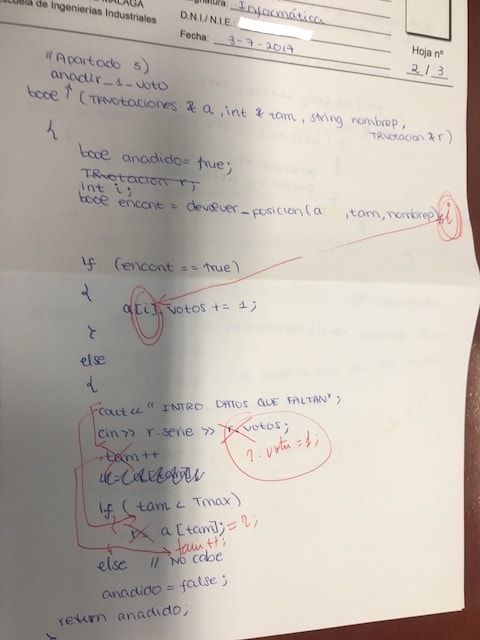 MÁLAGA
Escuela de Ingenierías Industriales
Asignatura: Informática
D.N.I / N.I.E.:
Fecha: 3-7-2017
Hoja nº
2 / 3
"Apartado 5)
anadir_1_voto
bool ↑ (TAVotaciones & a, int & tam, string nombrep,
TRVotacion & r)
{
bool anadido = true;
TRvotacion r;
int i;
bool encont = devolver_posicion(a , tam, nombrep), i
if (encont == true)
{
a[i].votos += 1;
}
else
{
cout << "INTRO DATOS QUE FALTAN";
cin >> r.serie >> r.votos;
r.votos = 1;
tam++
if (tam < Tmax)
r = a[tam]; = r;
tam++;
else // No cabe
anadido = false;
return anadido;
}